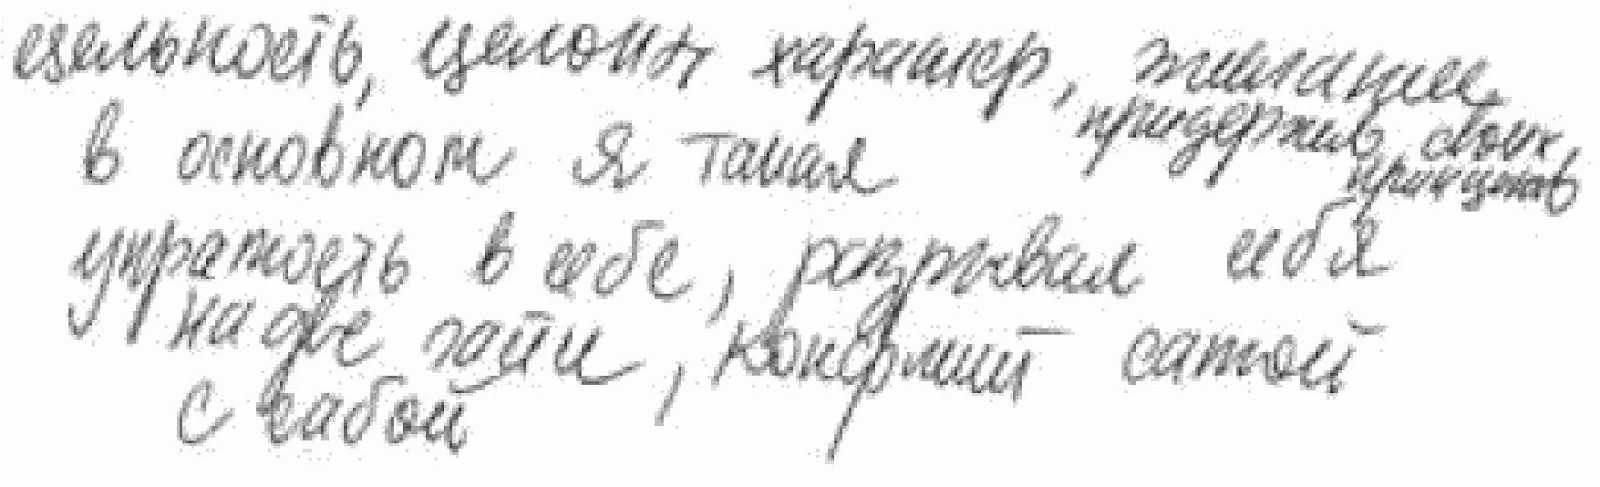 цельность, целоцн характер, желание
придержив своих
принципов
в основном я такая
упрятость в себе, разрывая себя
на две части, конфликт самой
с сабой